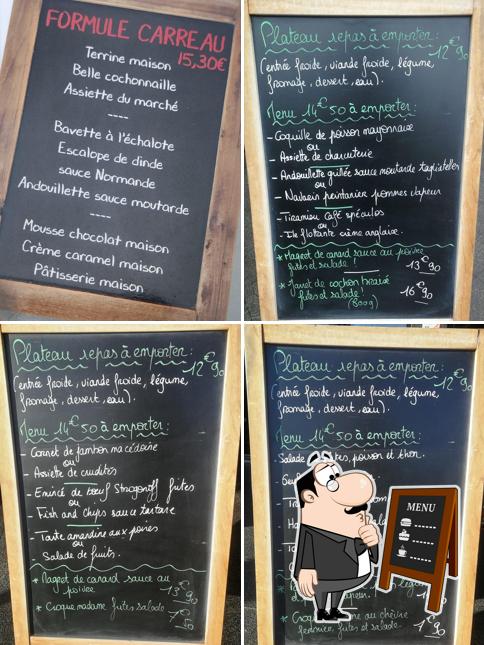 FORMULE CARREAU
15,30€
Terrine maison
Belle cochonnaille
Assiette du marché
----
Bavette à l'échalote
Escalope de dinde
sauce Normande
Andouillette sauce moutarde
----
Mousse chocolat maison
Crème caramel maison
Pâtisserie maison
Plateau repas à emporter:
12€90
(entrée froide, viande froide, légume,
fromage, dessert, eau).
Menu 14€50 à emporter:
- Coquille de poisson mayonnaise
ou
- Assiette de charcuterie
- Andouillette grillée sauce moutarde tagliatelles
ou
- Navarin printanier pommes vapeur
- Tiramisu café spéculos
ou
- Ile flottante crème anglaise.
* Magret de canard sauce au poivre
frites et salade!
13€90
* Jarret de cochon braisé
frites et salade!
(800g)
16€90
Plateau repas à emporter:
12€90
(entrée froide, viande froide, légume,
fromage, dessert, eau).
Menu 14€50 à emporter:
- Cornet de jambon macédoine
ou
- Assiette de crudités
- Emincé de bœuf Strogonoff frites
ou
- Fish and Chips sauce tartare
- Tarte amandine aux poires
ou
- Salade de fruits.
* Magret de canard sauce au
poivre
13€90
* Croque madame frites salade
7€50
Plateau repas à emporter:
12€90
(entrée froide, viande froide, légume,
fromage, dessert, eau).
Menu 14€50 à emporter:
Salade poison et thon.
MENU
au chèvre
frites et salade